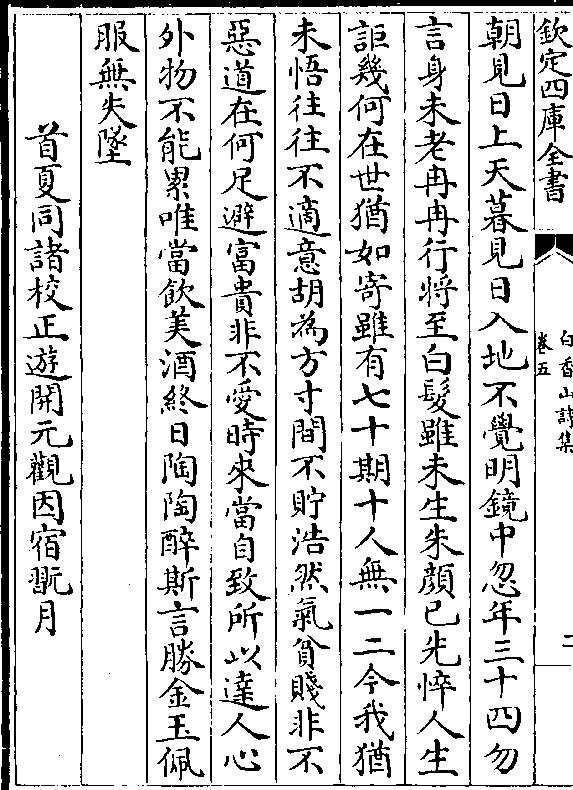 欽定四庫全書
白香山詩集
卷五
二
朝見日上天暮見日入地不覺明鏡中忽年三十四勿
言身未老冉冉行將至白髮雖未生朱顏已先悴人生
詎幾何在世猶如寄雖有七十期十人無一二今我猶
未悟往往不適意胡為方寸間不貯浩然氣貧賤非不
惡道在何足避富貴非不愛時來當自致所以達人心
外物不能累唯當飲美酒終日陶陶醉斯言勝金玉佩
服無失墜
首夏同諸校正遊開元觀因宿翫月